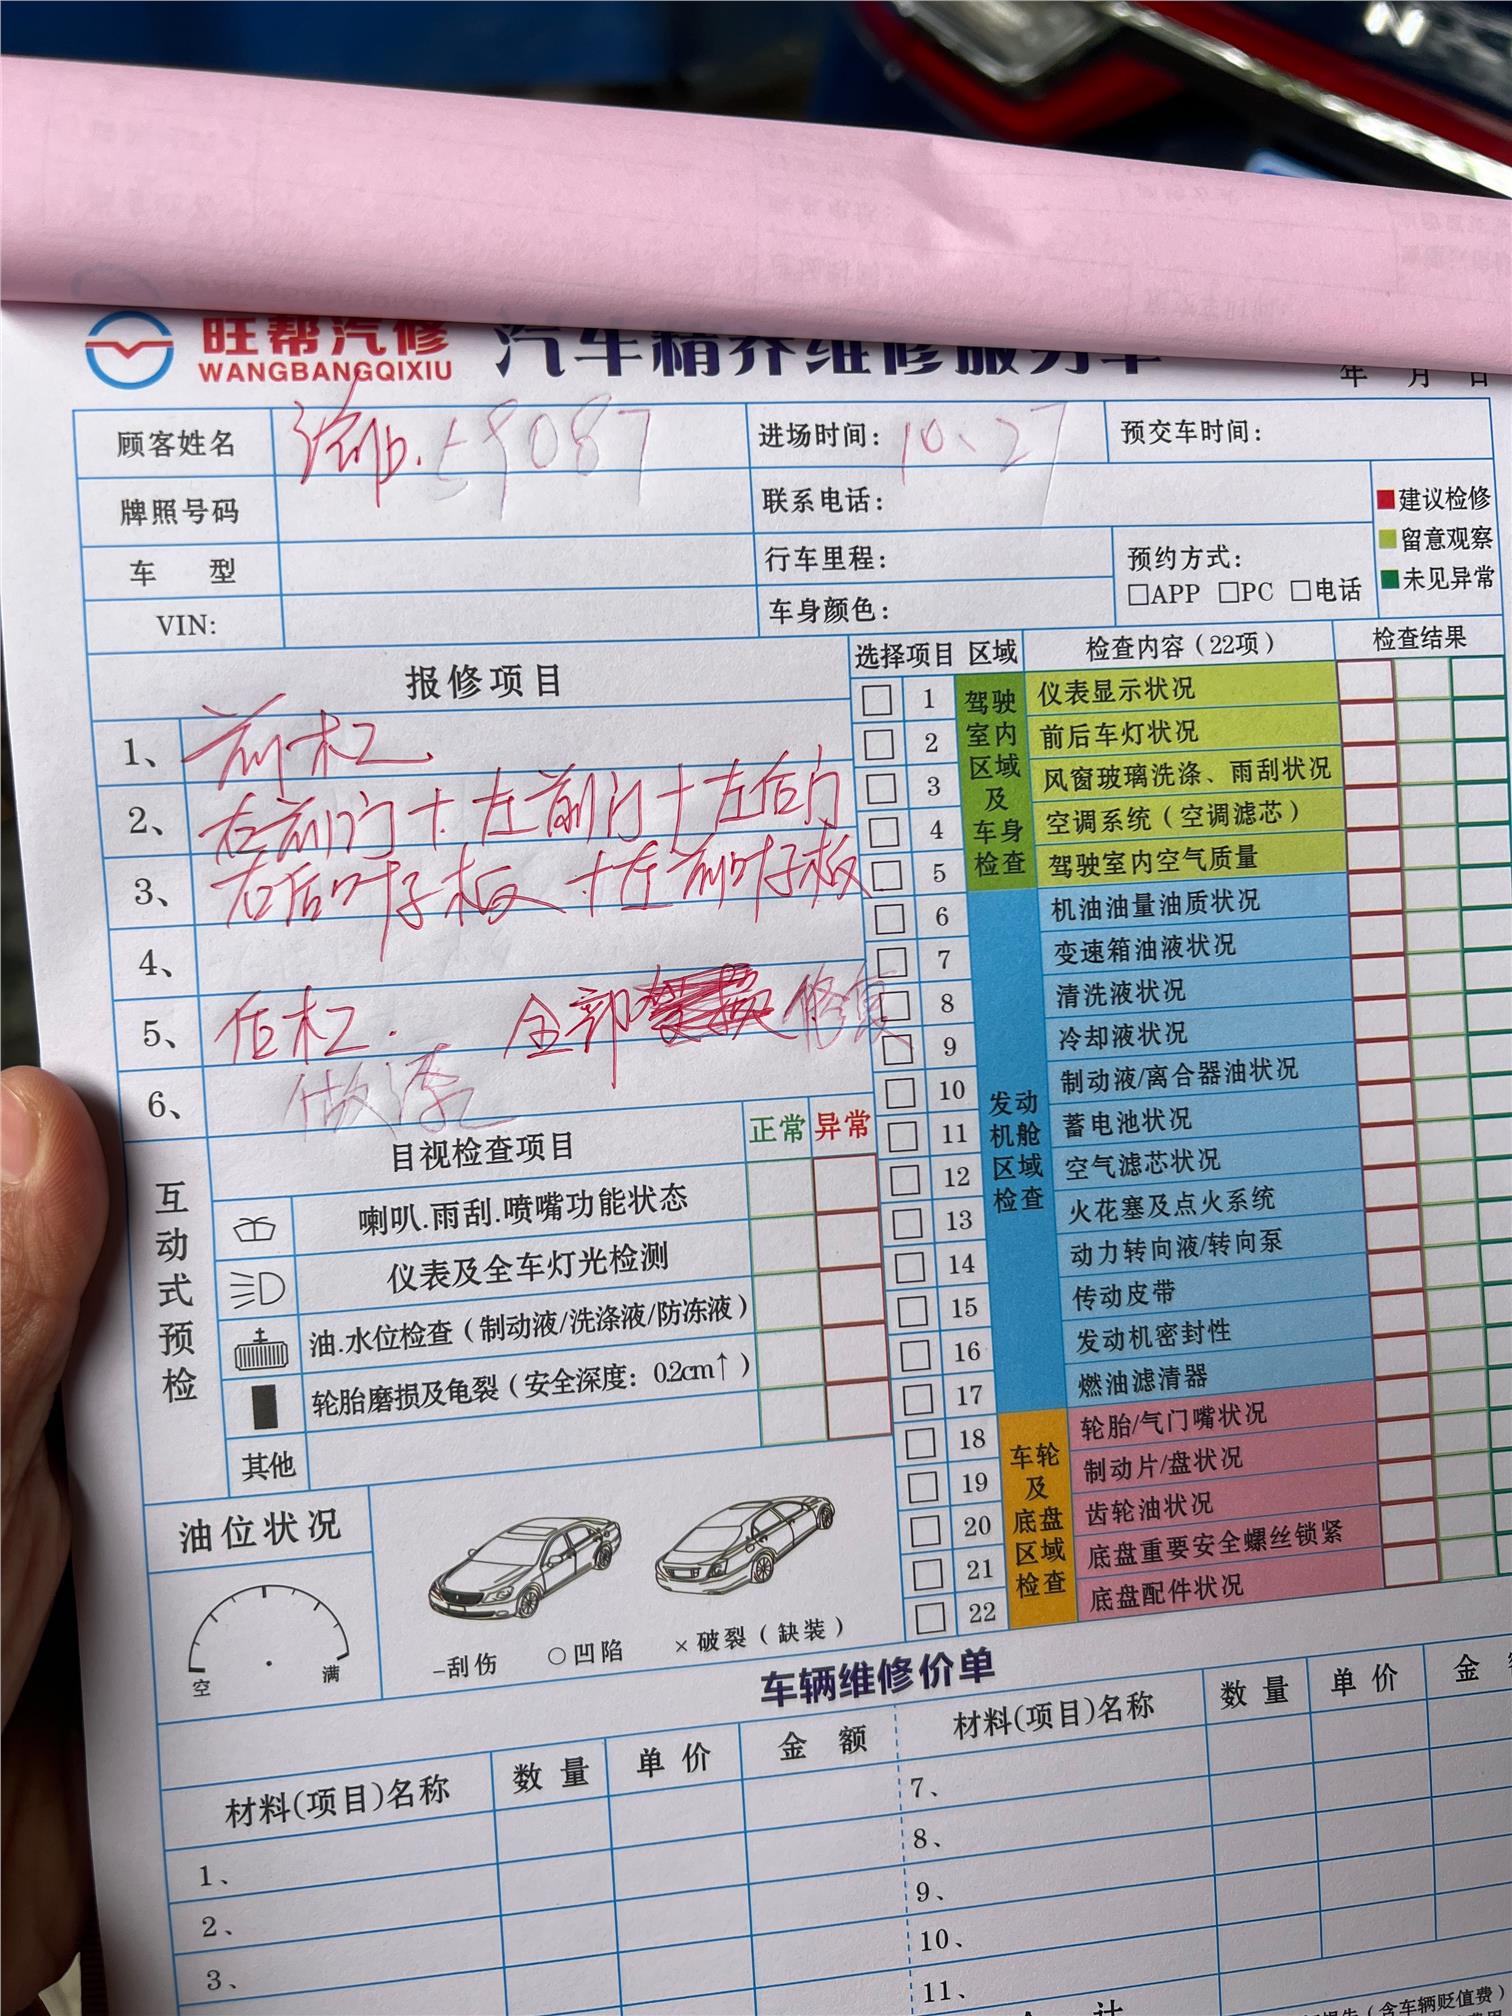 旺帮汽修
WANGBANGQIXIU
汽车精养维修服务单
年 月 日
顾客姓名 渝B.L9087
进场时间: 10、27
预交车时间:
牌照号码
联系电话:
■建议检修
■留意观察
■未见异常
车 型
行车里程:
预约方式:
□APP □PC □电话
VIN:
车身颜色:
报修项目
1、前杠
2、右前门+左前门+左后门
3、右后叶子板+左前叶子板
4、
5、后杠. 全部 修复
6、做漆
选择项目 区域 检查内容(22项) 检查结果
驾驶室内区域及车身检查
1 仪表显示状况
2 前后车灯状况
3 风窗玻璃洗涤、雨刮状况
4 空调系统(空调滤芯)
5 驾驶室内空气质量
发动机舱区域检查
6 机油油量油质状况
7 变速箱油液状况
8 清洗液状况
9 冷却液状况
10 制动液/离合器油状况
11 蓄电池状况
12 空气滤芯状况
13 火花塞及点火系统
14 动力转向液/转向泵
15 传动皮带
16 发动机密封性
17 燃油滤清器
车轮及底盘区域检查
18 轮胎/气门嘴状况
19 制动片/盘状况
20 齿轮油状况
21 底盘重要安全螺丝锁紧
22 底盘配件状况
互动式预检
目视检查项目 正常 异常
喇叭.雨刮.喷嘴功能状态
仪表及全车灯光检测
油.水位检查(制动液/洗涤液/防冻液)
轮胎磨损及龟裂(安全深度: 0.2cm↑)
其他
油位状况
空 满
-刮伤 ○凹陷 ×破裂(缺装)
车辆维修价单
材料(项目)名称 数量 单价 金额
材料(项目)名称 数量 单价 金
1、
2、
3、
7、
8、
9、
10、
11、
合 计
(含车辆贬值费)